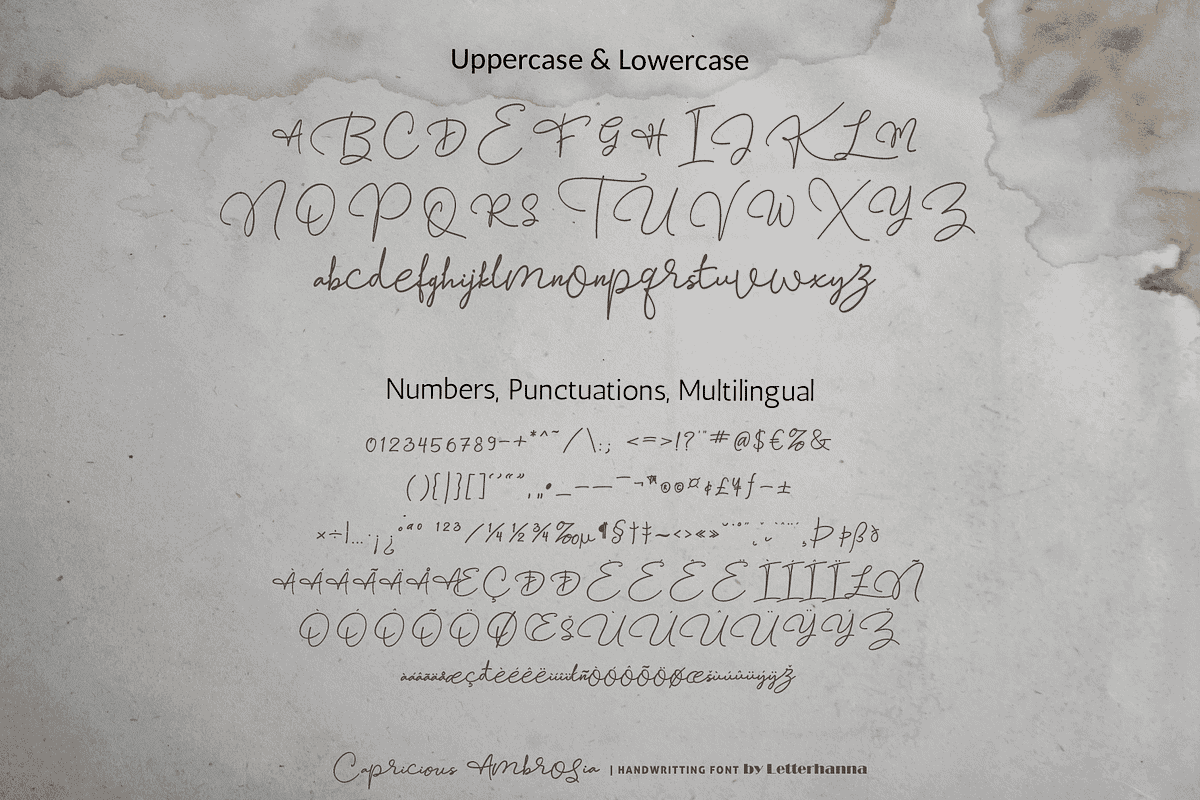 Uppercase & Lowercase
A B C D E F G H I J K L M
N O P Q R S T U V W X Y Z
abcdefghijklmnonpqrstuvwxyz
Numbers, Punctuations, Multilingual
0123456789-+*^~/\:; <=>!?'"#@$€%&
(){|}[]‘’“”‚„•_–—¯¬™®©¤¢£¥ƒ−±
×÷|…·¡¿ªº ¹²³⁄¼½¾‰µ¶§†‡~‹›«» Þþßð
ÀÁÂÃÄÅÆÇÐĐÈÉÊËÌÍÎÏŁÑ
ÒÓÔÕÖØŒŠÙÚÛÜŸÝŽ
àáâãäåæçđèéêëìíîïłñòóôõöøœšùúûüýÿž
Capricious Ambrosia | HANDWRITTING FONT by Letterhanna